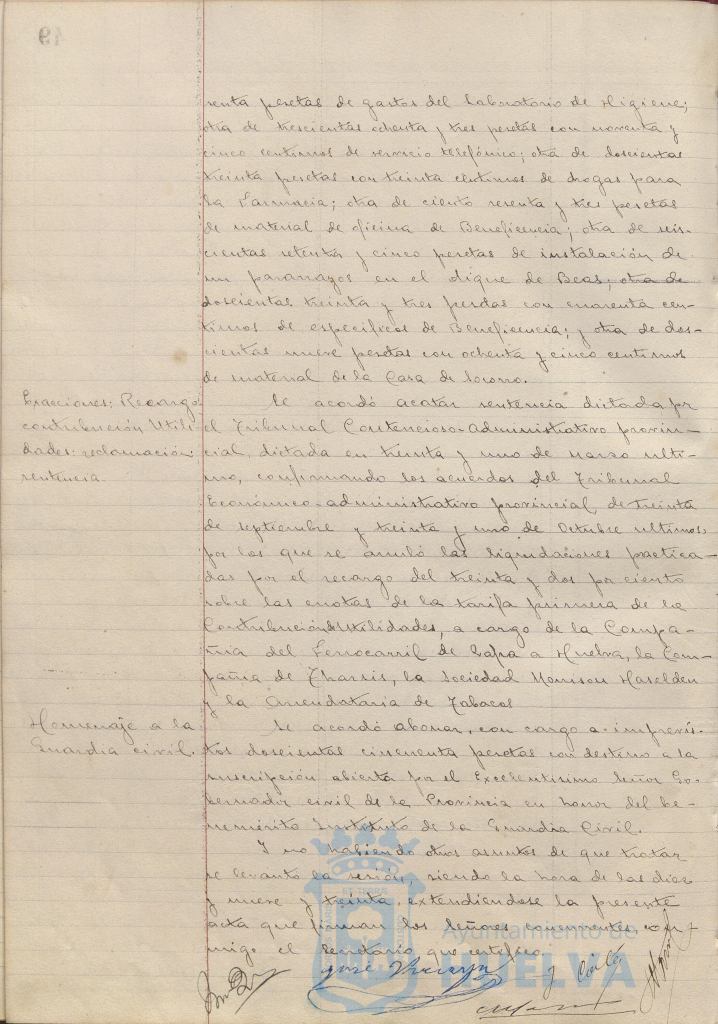 49
renta pesetas de gastos del Laboratorio de Higiene;
otra de trescientas ochenta y tres pesetas con noventa y
cinco centimos de servicio telefónico; otra de doscientas
treinta pesetas con treinta centimos de drogas para
la Farmacia; otra de ciento sesenta y tres pesetas
de material de oficina de Beneficencia; otra de seis-
cientas setenta y cinco pesetas de instalación de
un pararrayos en el dique de Beas; otra de
doscientas treinta y tres pesetas con cuarenta cen-
timos de especificos de Beneficencia; y otra de dos-
cientas nueve pesetas con ochenta y cinco centimos
de material de la Casa de Socorro.
Exacciones: Recargo
contribución Utili-
dades: reclamación:
sentencia.
Se acordó acatar sentencia dictada por
el Tribunal Contencioso-Administrativo provin-
cial, dictada en treinta y uno de Marzo ulti-
mo, confirmando los acuerdos del Tribunal
Económico-administrativo provincial de Treinta
de septiembre y treinta y uno de Octubre ultimos,
por los que se anuló las liquidaciones practica-
das por el recargo del treinta y dos por ciento
sobre las cuotas de la tarifa primera de la
Contribución de Utilidades, a cargo de la Compa-
ñia del Ferrocarril de Zafra a Huelva, la Com-
pañia de Tharsis, la Sociedad Morrison Haselden
y la Arrendataria de Tabacos
Homenaje a la
Guardia civil.
Se acordó abonar, con cargo a imprevis-
tos doscientas cincuenta pesetas con destino a la
suscripción abierta por el Excelentisimo Señor Go-
bernador civil de la Provincia en honor del be-
nemérito Instituto de la Guardia Civil.
Y no habiendo otros asuntos de que tratar
se levantó la sesión, siendo la hora de las diez
y nueve y treinta, extendiendose la presente
acta que firman los Señores concurrentes con-
migo el Secretario que certifico.
Ayuntamiento de
HUELVA
José
y Cortés